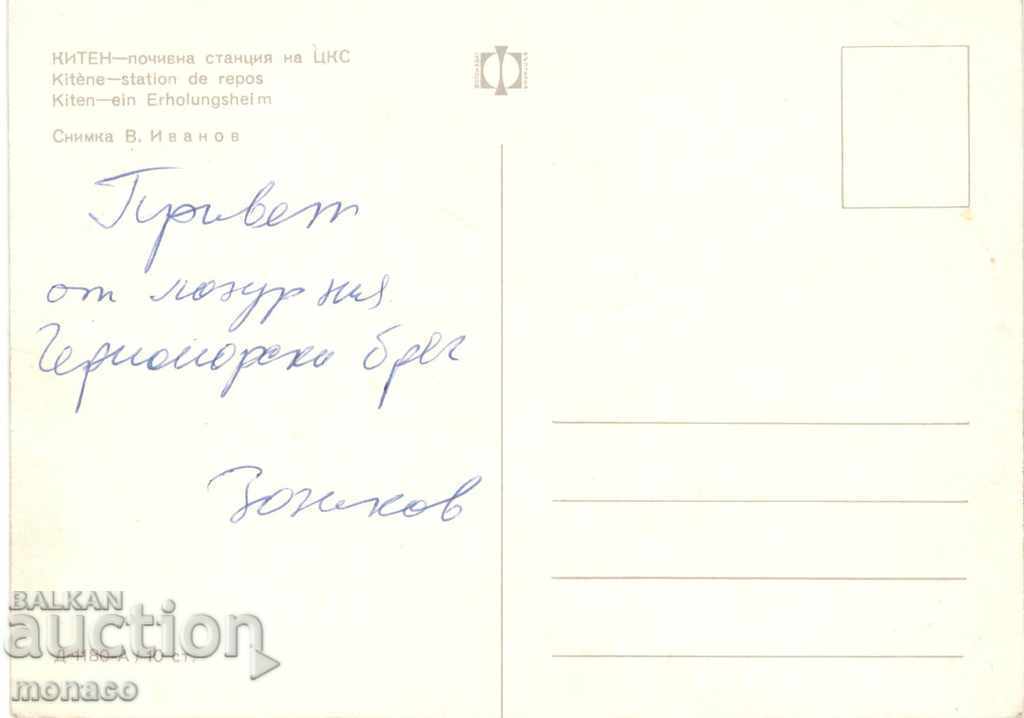 КИТЕН—почивна станция на ЦКС
Kitène—station de repos
Kiten—ein Erholungsheim
Снимка В. Иванов
Привет
от лазурния
Черноморски бряг
Д-1180-А / 10 ст.
BALKAN
auction
monaco